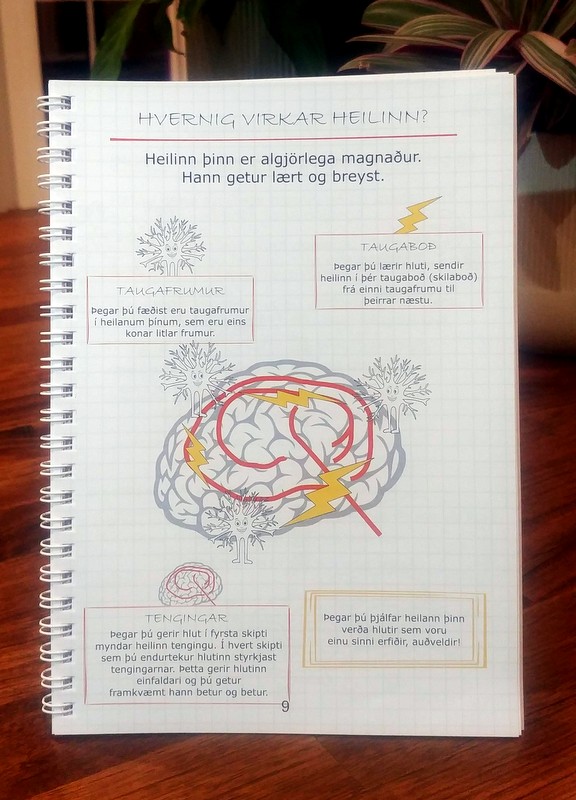 HVERNIG VIRKAR HEILINN?
Heilinn þinn er algjörlega magnaður.
Hann getur lært og breyst.
TAUGAFRUMUR
Þegar þú fæðist eru taugafrumur
í heilanum þínum, sem eru eins
konar litlar frumur.
TAUGABOÐ
Þegar þú lærir hluti, sendir
heilinn í þér taugaboð (skilaboð)
frá einni taugafrumu til
þeirrar næstu.
TENGINGAR
Þegar þú gerir hlut í fyrsta skipti
myndar heilinn tengingu. Í hvert skipti
sem þú endurtekur hlutinn styrkjast
tengingarnar. Þetta gerir hlutinn
einfaldari og þú getur
framkvæmt hann betur og betur.
Þegar þú þjálfar heilann þinn
verða hlutir sem voru
einu sinni erfiðir, auðveldir!
9